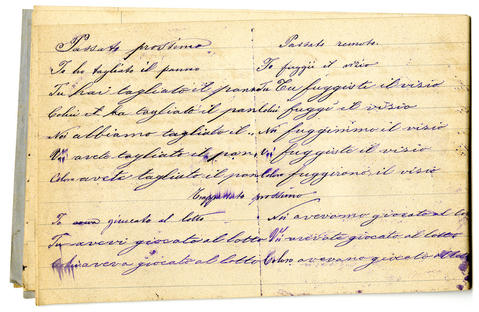 Passato prossimo
Io ho tagliato il panno
Tu hai tagliato il panno
Colui ha tagliato il pan
Noi abbiamo tagliato il
Voi avete tagliato il pan
Coloro avete tagliato il pan
Passato remoto.
Io fuggii il vizio
Tu fuggiste il visio
Colui fuggì il visio
Noi fuggimmo il visio
Voi fuggiste il visio
Coloro fuggirono, il visio
Trappassato prossimo
Io giuocato al lotto
Tu avevi giocato al lotto
Colui aveva giocato al lotto
Noi avevamo giocato al lo
Voi avevate giocato al lotto
Coloro avevano giocato al lotto